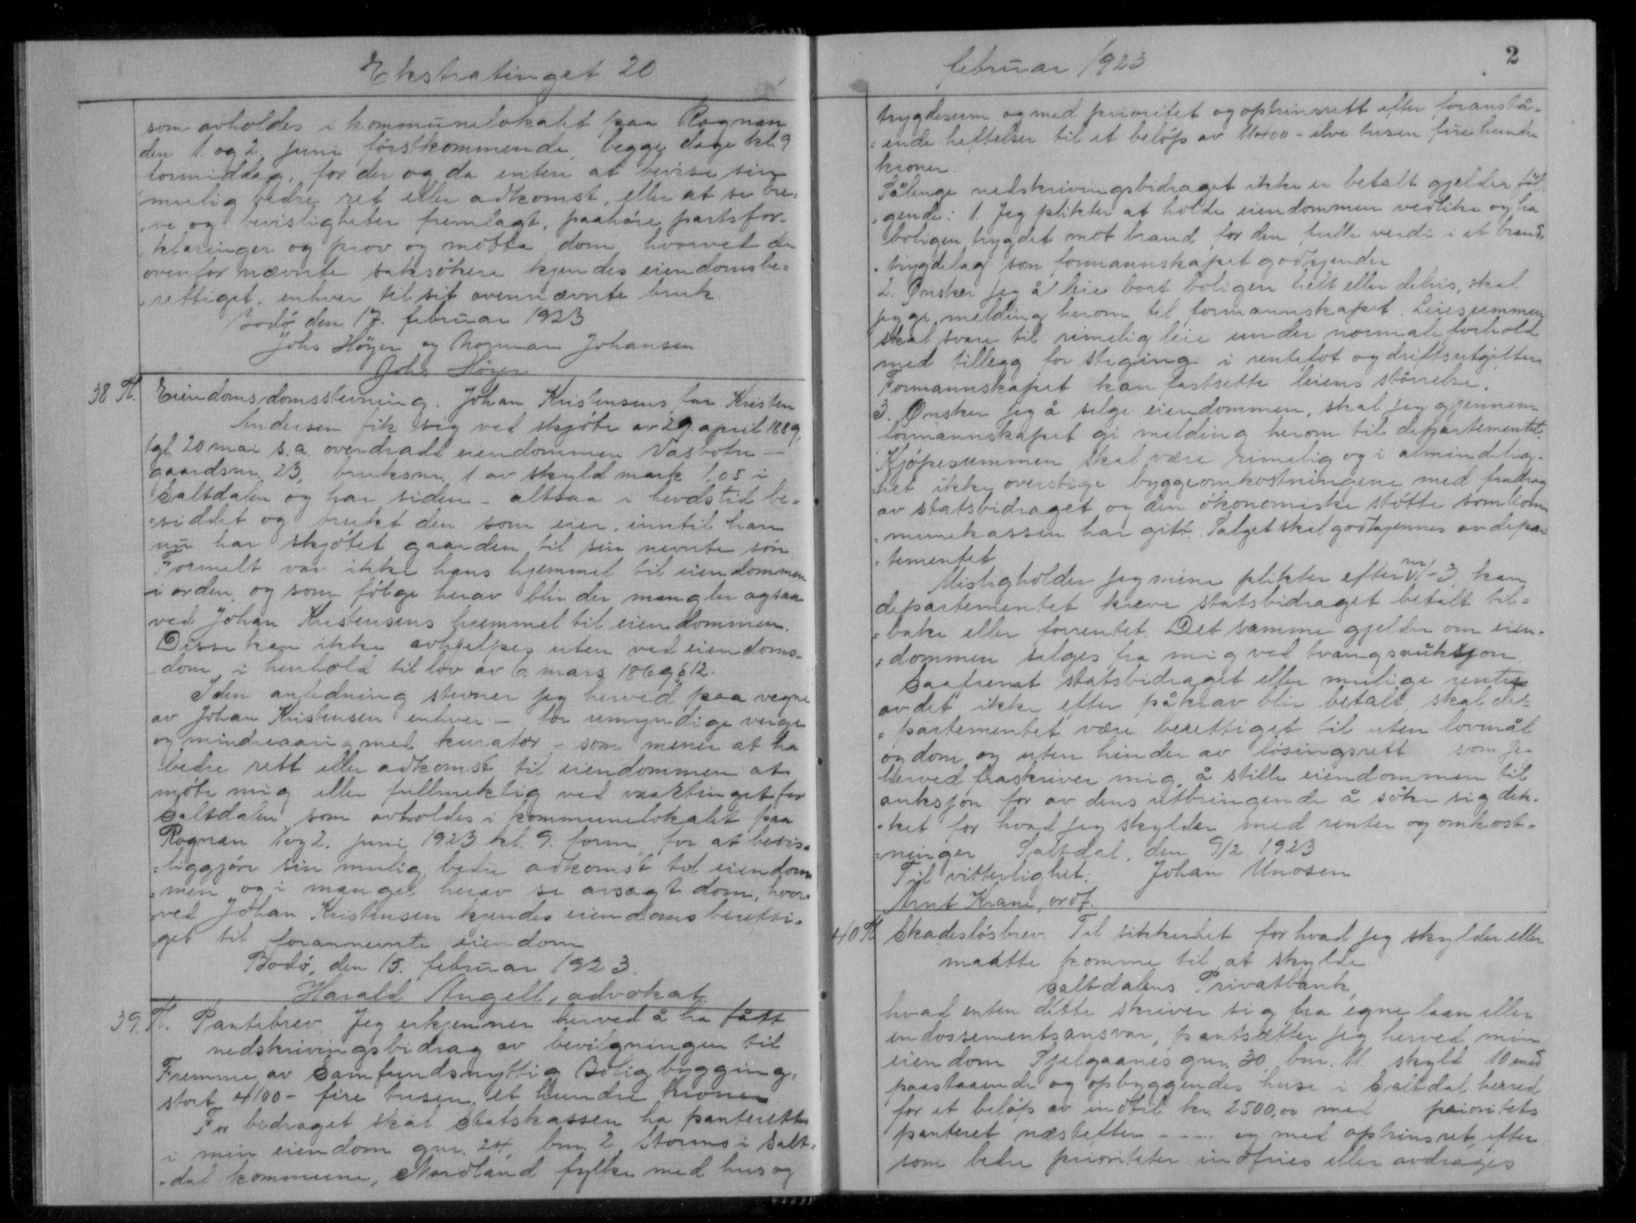 Ekstratinget 20
som avholdes i kommunelokalet paa Rognan
den 1. og 2. juni førstkommende, begge dage kl. 9
formiddag, for der og da enten at bevise sin
mulig bedre ret eller adkomst, eller at se bre-
ve og bevisligheter fremlagt, paahöre partsfor-
klaringer og prov og motta dom, hvorved de
ovenfor nævnte saksökere kjendes eiendomsbe-
rettiget, enhver til sit ovennævnte bruk
Bodö den 17. februar 1923
Johs Höyer og Johansen
Johs Höyer
38 Eiendomsdomsstevning. Johan Kristensens far Kristen
Andersen fik sig ved skjöte av 29. april 1889,
tgl. 20 mai s.a. overdradd eiendommen Vasbotn —
gaardsnr. 23, bruksnr. 1 av skyld mark 1,05 i
Saltdalen og har siden - altsaa i hevdstid be-
siddet og brukt den som eier, inntil han
nu har skjötet gaarden til sin nevnte sön
Formelt var ikke hans hjemmel til eiendommen
i orden, og som fölge herav blir der mangler ogsaa
ved Johan Kristensens hjemmel til eiendommen.
Disse kan ikke avhjelpes uten ved eiendoms-
dom i henhold til lov av 6 mars 1869 § 12.
I den anledning stevner jeg herved paa vegne
av Johan Kristensen enhver - for umyndige verge
og mindreaarig med kurator - som mener at ha
bedre rett eller adkomst til eiendommen at
möte mig eller fullmektig ved vaartinget for
Saltdalen som avholdes i kommunelokalet paa
Rognan 1 og 2. juni 1923 kl. 9. form. for at bevis-
liggjöre sin mulig bedre adkomst til eiendom
men og i mangel herav se avsagt dom, hvor-
ved Johan Kristensen kjendes eiendomsberetti-
get til forannevnte eiendom
Bodö, den 15. februar 1923.
Harald Angell, advokat
39. Pantebrev. Jeg erkjenner herved å ha fått
nedskrivingsbidrag av bevilgningen til
Fremme av Samfundsnyttig Boligbygging,
stort 4100 - fire tusen et hundre kroner
For bedraget skal Statskassen ha panterett
i min eiendom gnr. 24, bnr. 2, Storms i Salt-
dal kommune, Nordland fylke med hus og
februar 1923
2
trygdesum og med prioritet og optrinsrett efter foranstå-
ende heftelser til et belöp av 11400 - elve tusen fire hundre
kroner.
Sålenge nedskrivingsbidraget ikke er betalt gjelder föl-
gende: 1. Jeg plikter at holde eiendommen vedlike og ha
boligen trygdet mot brand for den fulle verdi i et brand-
trygdelag som formannskapet godkjender
2. Önsker jeg å leie bort boligen helt eller delvis, skal
jeg gi melding herom til formannskapet. Leiesummen
skal svare til rimelig leie under normale forhold
med tillegg for stigning i rentefot og driftsutgifter
Formannskapet kan fastsette leiens störrelse.
3. Önsker jeg å selge eiendommen, skal jeg gjennem
formannskapet gi melding herom til departementet.
Kjöpesummen skal være rimelig og i almindelig-
het ikke overstige byggeomkostningene med fradrag
av statsbidraget og den ökonomiske stötte som kom
munekassen har gitt. Salget skal godkjennes av depar
tementet
Misligholder jeg mine plikter efter nr. 1-3, kan
departementet kreve statsbidraget betalt til-
bake eller forrentet. Det samme gjelder om eien-
dommen selges fra mig ved tvangsauksjon.
Saafremt statsbidraget eller mulige renter
av det ikke efter påkrav blir betalt, skal de-
partementet være berettiget til uten lovmål
og dom og uten hinder av lösingsrett som jeg
herved fraskriver mig, å stille eiendommen til
auksjon for av dens utbringende å söke sig dek-
ket for hvad jeg skylder med renter og omkost-
ninger Saltdal, den 9/2 1923
Til vitterlighet: Johan Unosen
Arnt Krane, ordf.
40 Skadeslösbrev. Til sikkerhet for hvad jeg skylder eller
maatte komme til at skylde
Saltdalens Privatbank,
hvad enten dette skriver sig fra egne laan eller
endossementsansvar, pantsætter jeg herved min
eiendom gnr. 30, bnr. 11 skyld 10 med
paastaaende og opbyggendes huse i Saltdal herred
for et belöp av indtil kr. 2500,00 med prioritets
panteret næstefter - - - - og med optrinsret efter-
som bedre prioriteter indfries eller avdrages